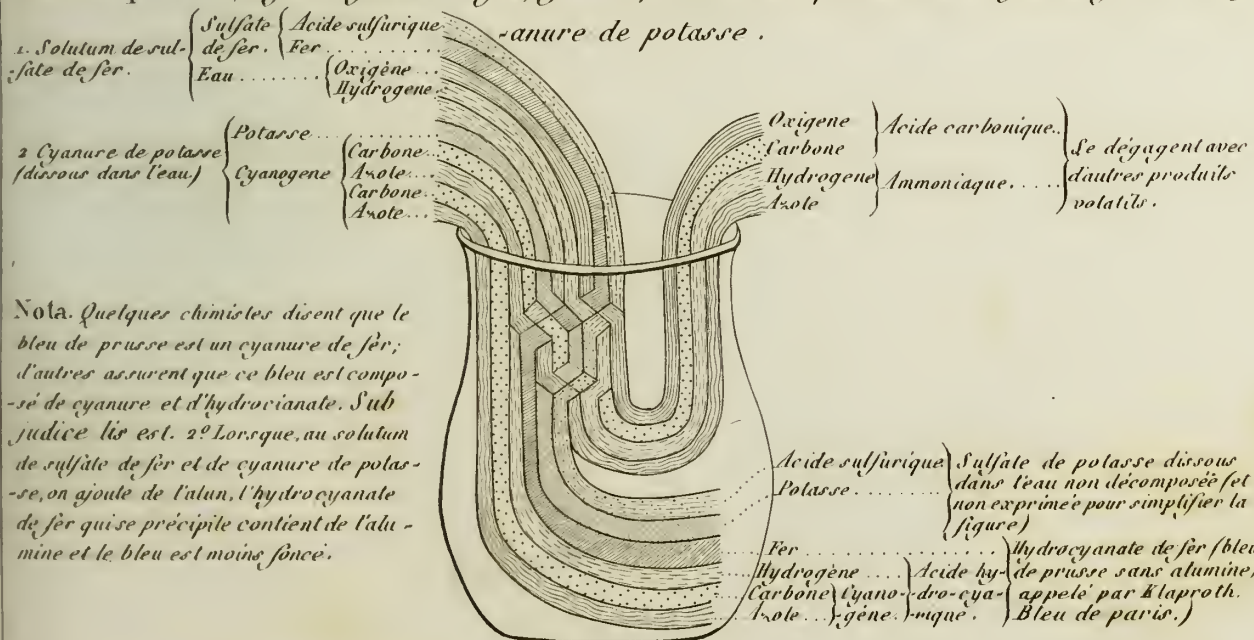 -anure de potasse.
1. Solutum de sul-
-fate de fer.
Sulfate
de fer.
Acide sulfurique
Fer..........
Eau........
Oxigène...
Hydrogene.
2 Cyanure de potasse
(dissous dans l'eau.)
Potasse..............
Cyanogene
Carbone...
Azote...
Carbone...
Azote...
Oxigene
Carbone
Acide carbonique..
Hydrogene
Azote
Ammoniaque.....
Se dégagent avec
d'autres produits
volatils.
Nota. Quelques chimistes disent que le
bleu de prusse est un cyanure de fer;
d'autres assurent que ce bleu est compo-
-sé de cyanure et d'hydrocianate. Sub
judice lis est. 2º Lorsque, au solutum
de sulfate de fer et de cyanure de potas-
-se, on ajoute de l'alun, l'hydrocyanate
de fer qui se précipite contient de l'alu-
mine et le bleu est moins foncé.
Acide sulfurique
Potasse.........
Sulfate de potasse dissous
dans l'eau non décomposée (et
non exprimée pour simplifier la
figure)
Fer......................
Hydrogène....
Carbone
Azote...
Cyano-
-gène.
Acide hy-
-dro-cya-
-nique.
Hydrocyanate de fer (bleu
de prusse sans alumine,
appelé par Klaproth.
Bleu de paris.)